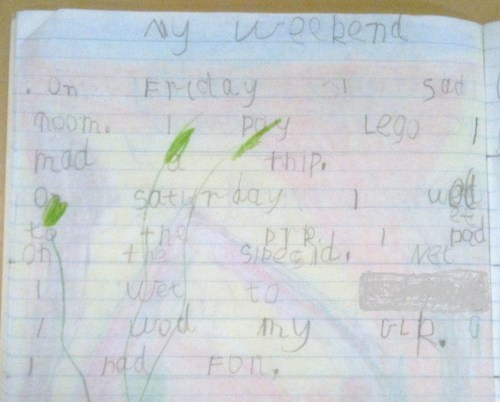 My weekend
. On Friday I sad
room. I pay Lego I
mad a thip.
On saturday I
to the prp. I pad
on the sibesid. Nec
I wet to
I wod my GLR.
I had Fon.